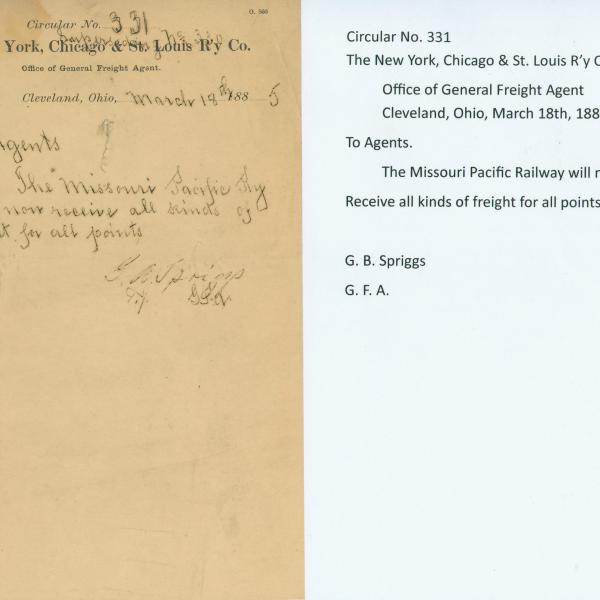 O. 560
Circular No. 331
Superseding No 330
York, Chicago & St. Louis R'y Co.
Office of General Freight Agent.
Cleveland, Ohio, March 18th 1885
gents
The Missouri Pacific Ry
now receive all kinds of
t for all points
G. B. Spriggs
G.F.A.
Circular No. 331
The New York, Chicago & St. Louis R’y C
Office of General Freight Agent
Cleveland, Ohio, March 18th, 188
To Agents.
The Missouri Pacific Railway will n
Receive all kinds of freight for all points
G. B. Spriggs
G. F. A.